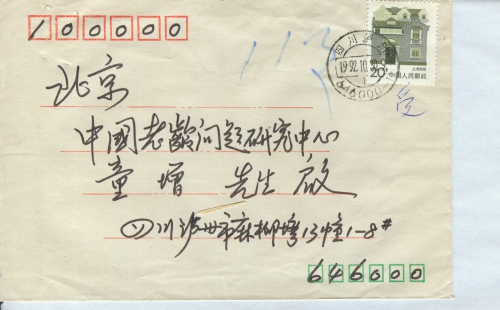 100000
四川泸州
1992.10.
646000
20
中国人民邮政
北京
中国老龄问题研究中心
童增 先生 启
四川泸州市麻柳湾13幢1-8#
646000